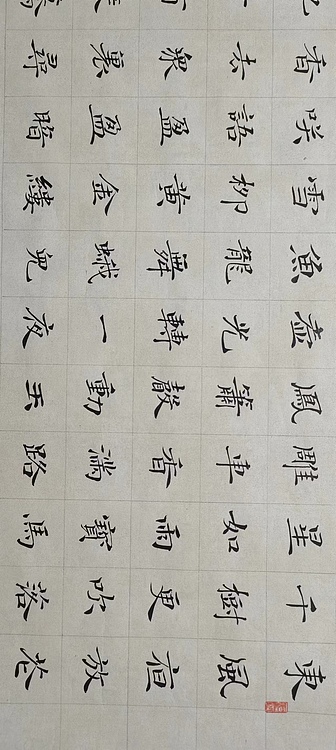 東風夜放花
千樹更吹落
星如雨寶馬
雕車香滿路
鳳簫聲動玉
壺光轉一夜
魚龍舞蛾兒
雪柳黃金縷
咲語盈盈暗
香去眾裏尋